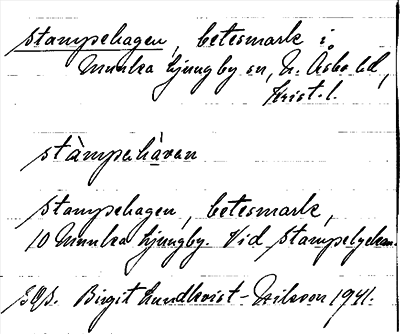 Stampehagen, betesmark i
Munka Ljungby sn, N. Åsbo hd,
Krist. l.
stàmpehàvan
Stampehagen, betesmark,
10 Munka Ljungby. Vid Stampelyckan.
Birgit Lundkvist-Nilsson 1941.